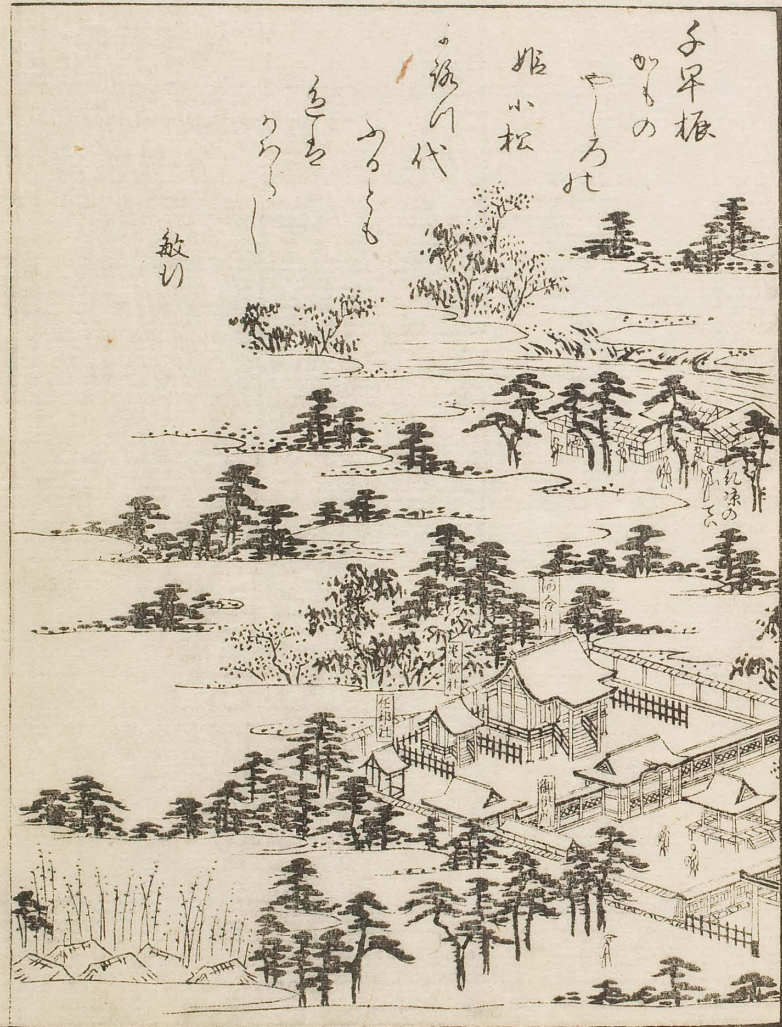 千早振
かもの
やしろの
姫小松
よろつ代
ふるとも
色は
かはらし
敏行
糺凉の
河合社
任部社